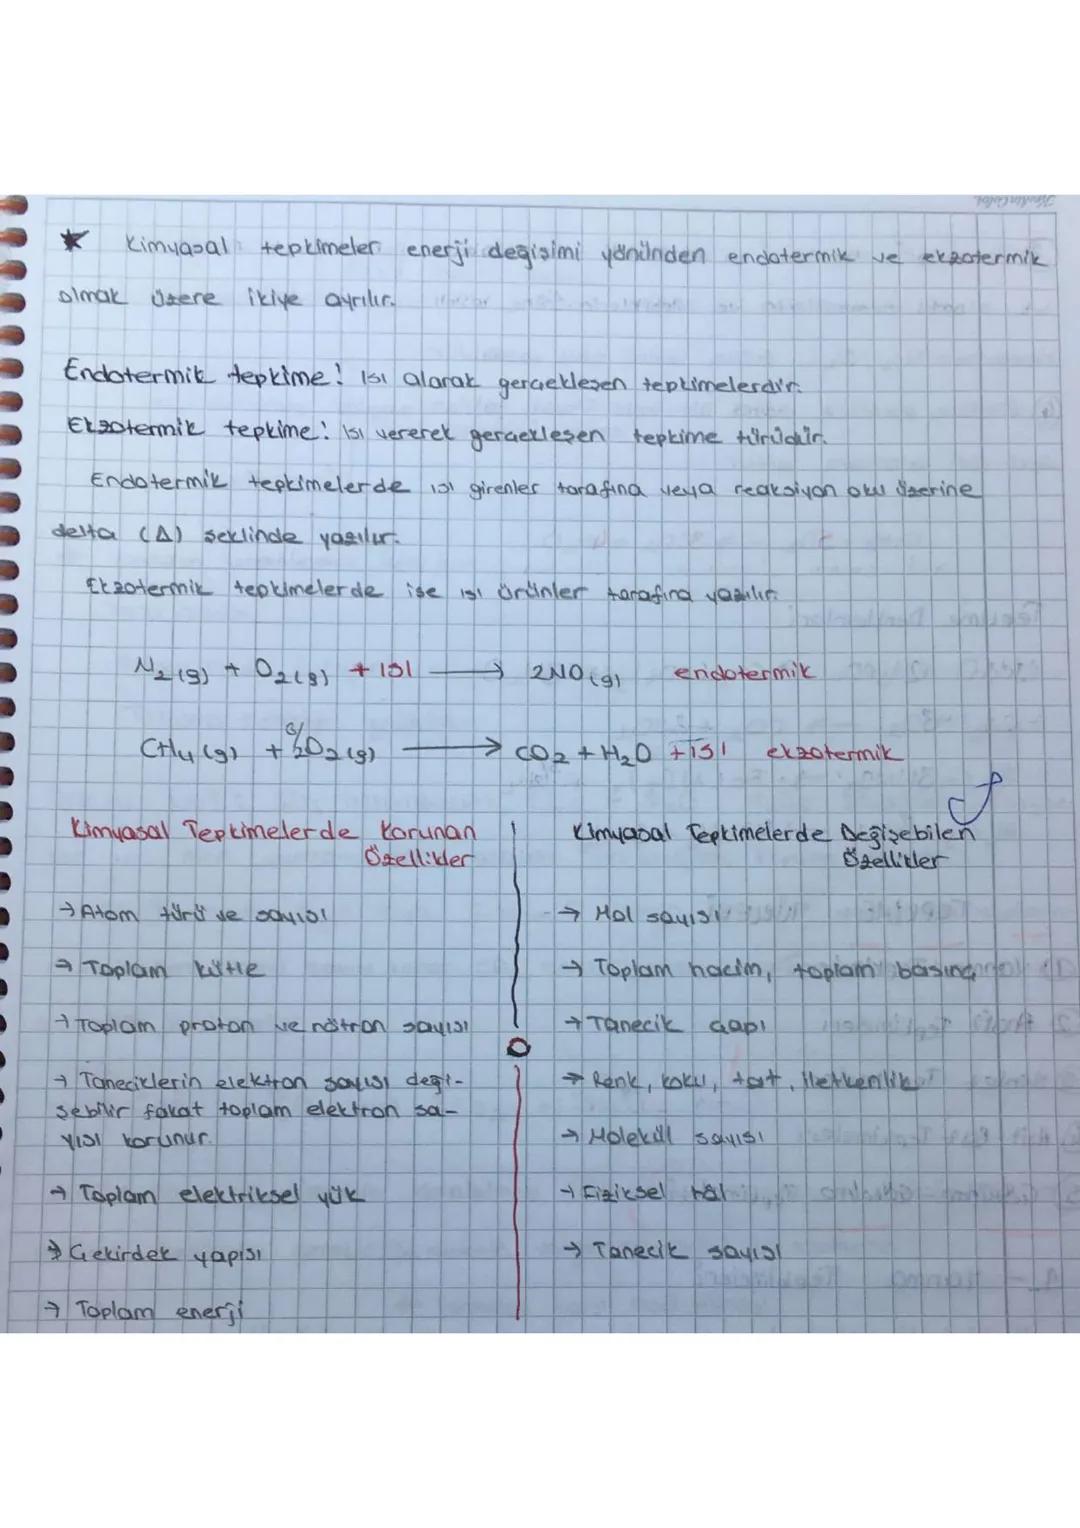 ★ Kimyasal tepkimeler enerji değişimi yönünden endotermik ve ekzotermik
olmak üzere ikiye ayrılır.
Endotermik tepkime: ısı alarak gerçekleşen tepkimelerdir.
Ekzotermik tepkime: ısı vererek gerçekleşen tepkime türüdür.
Endotermik tepkimelerde ısı girenler tarafına veya reaksiyon oku üzerine
delta (Δ) şeklinde yazılır.
Ekzotermik tepkimelerde ise ısı ürünler tarafına yazılır.
N₂(g) + O₂(g) + ısı → 2NO(g) endotermik
CH₄(g) + /2O₂(g) → CO₂ + H₂O + ısı ekzotermik
Kimyasal Tepkimelerde Korunan
Özellikler
→ Atom türü ve sayısı
→ Toplam kütle
→ Toplam proton ve nötron sayısı
→ Taneciklerin elektron sayısı deği-
şebilir fakat toplam elektron sa-
yısı korunur.
→ Toplam elektriksel yük
→ Çekirdek yapısı
→ Toplam enerji
Kimyasal Tepkimelerde Değişebilen
Özellikler
→ Mol sayısı
→ Toplam hacim, toplam basınç
→ Tanecik çapı
→ Renk, koku, tat, iletkenlik
→ Molekül sayısı
→ Fiziksel hal
→ Tanecik sayısı